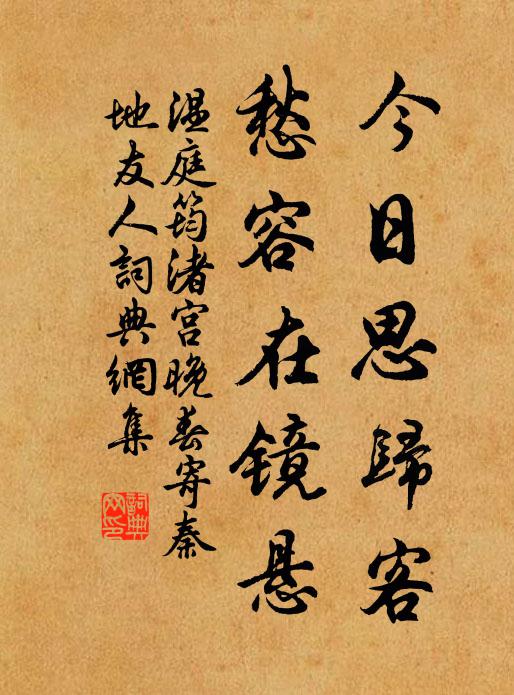 今日思歸客
愁容在镜悬
温庭筠渚宫晚春寄秦
地友人詞典網集
詞典網印